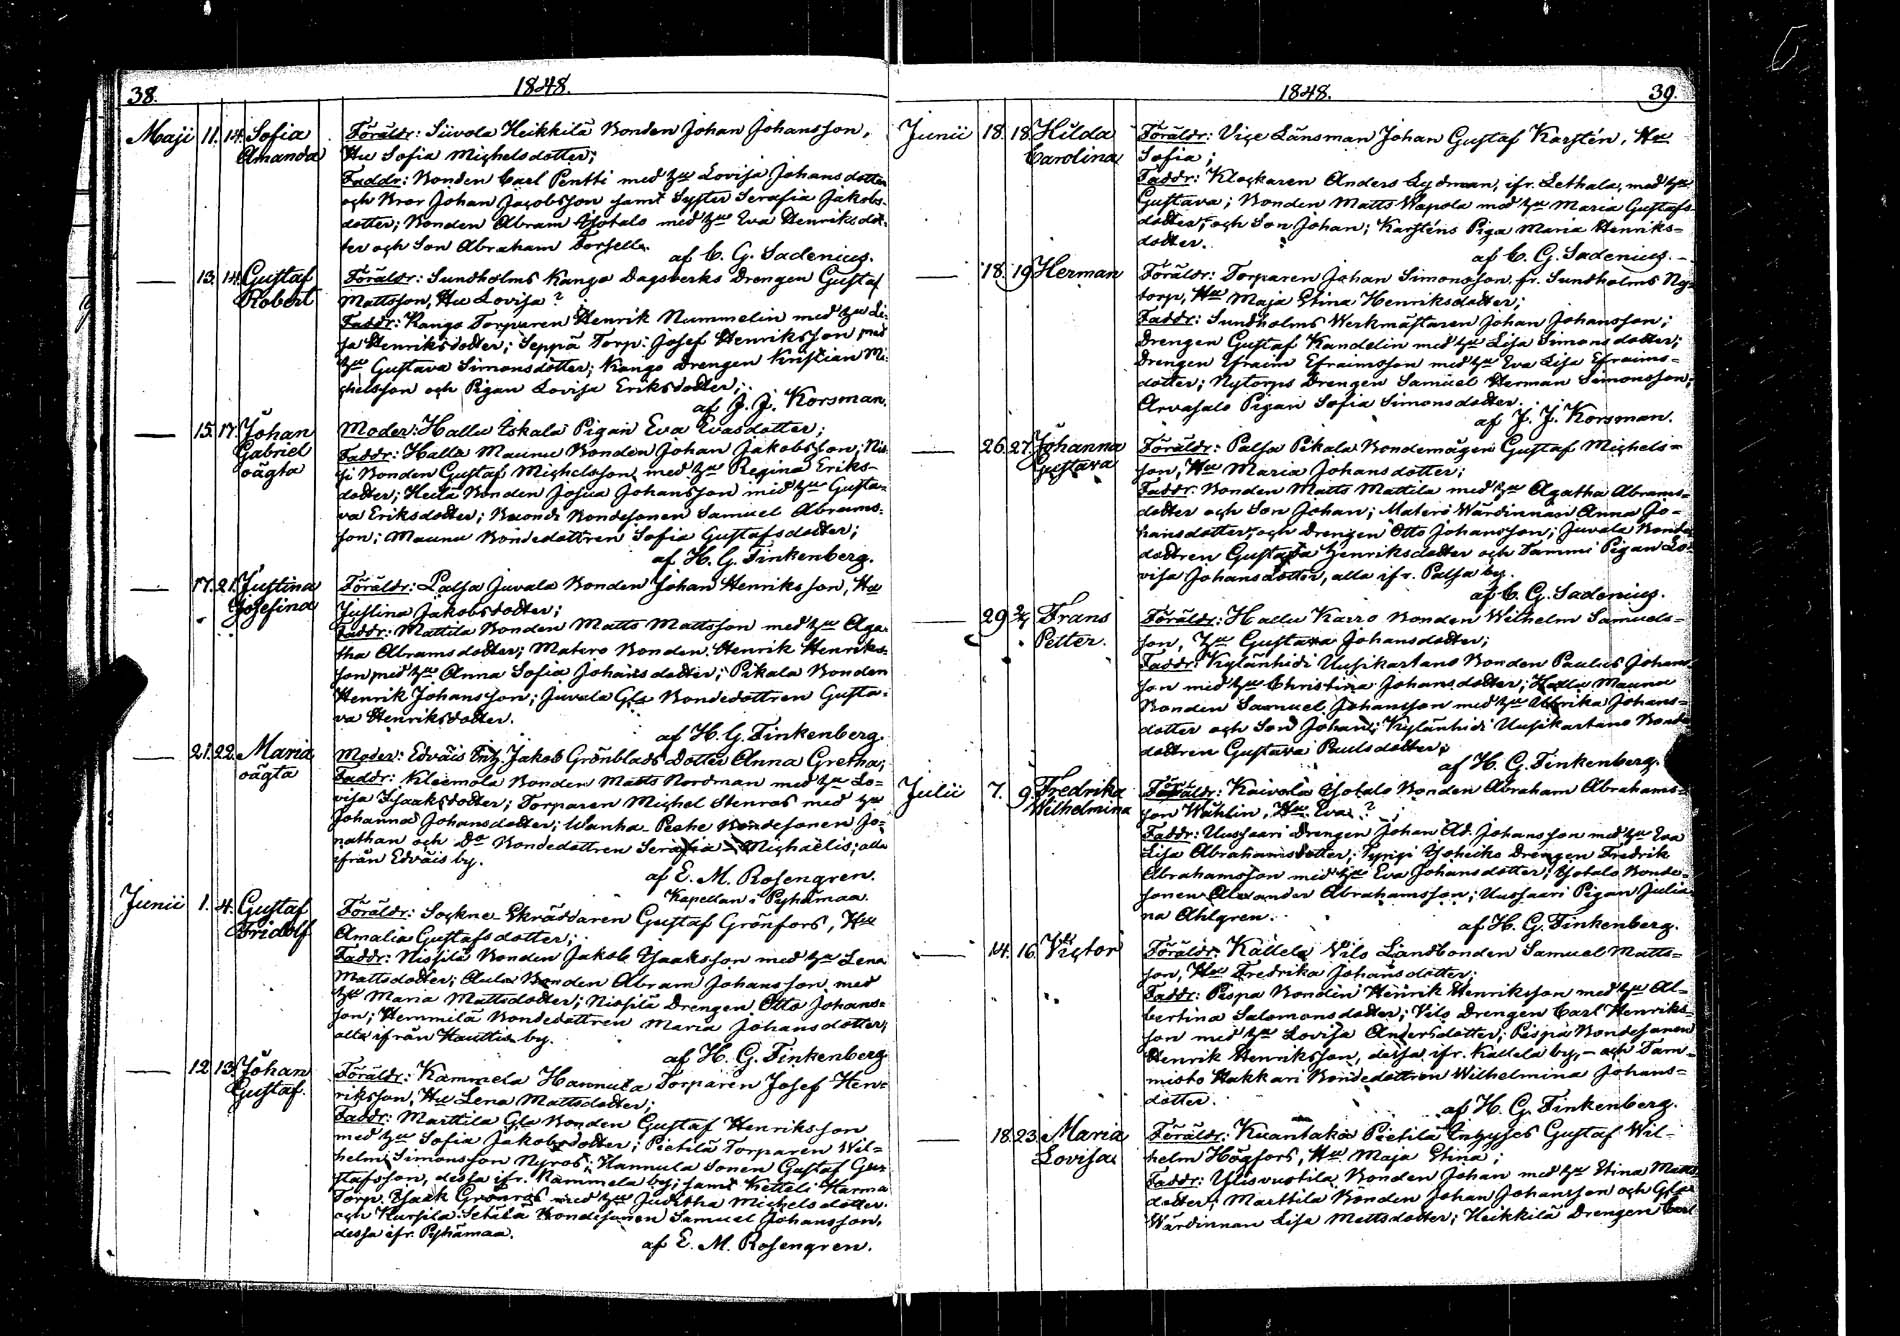 38.
1848.
Maji 11. 14. Sofia Amanda
Föräldr: Siivola Heikkilä Bonden Johan Johansson,
Hu Sofia Michelsdotter;
Faddr: Bonden Carl Pentti med hu Lovisa Johansdotter
och Bror Johan Jacobsson samt Syster Serafia Jakobs-
dotter; Bonden Abram Yotalo med hu Eva Henriksdot-
ter och Son Abraham Forsell.
af C. G. Sadenius.
— 13. 14. Gustaf Robert
Föräldr: Sundholms Kango Dagsverks Drengen Gustaf
Mattsson, Hu Lovisa?
Faddr: Kango Torparen Henrik Nummelin med hu Li-
sa Henriksdotter; Seppä Torp: Josef Henriksson med
hu Gustava Simonsdotter; Kango Drengen Kristian Mi-
chelsson och Pigan Lovisa Eriksdotter;
af J. J. Korsman.
— 15. 17. Johan Gabriel oägta
Moder: Hallu Eskala Pigan Eva Evasdotter;
Faddr: Hallu Maunu Bonden Johan Jakobsson; Nis-
si Bonden Gustaf Michelsson med hu Regina Eriks-
dotter; Heilä Bonden Josua Johansson med hu Gusta-
va Eriksdotter; Buondi Bondesonen Samuel Abrams-
son; Maunu Bondedottren Sofia Gustafsdotter;
af H. G. Finkenberg.
— 17. 21. Justina Josefina
Föräldr: Palsa Juvala Bonden Johan Henriksson, Hu
Justina Jakobsdotter;
Faddr: Mattila Bonden Matts Mattsson med hu Aga-
tha Abramsdotter; Matero Bonden Henrik Henriks-
son med hu Anna Sofia Johansdotter; Pikala Bonden
Henrik Johansson; Juvala Gla Bondedottren Gusta-
va Henriksdotter.
af H. G. Finkenberg.
— 21. 22. Maria oägta
Moder: Edväis Enk. Jakob Grönblads Dotter Anna Gretha;
Faddr: Kleemola Bonden Matts Nordman med hu Lo-
visa Isaaksdotter; Torparen Michel Stenros med hu
Johanna Johansdotter; Wanha-Perhe Bondesonen Jo-
nathan och Do Bondedottren Serafia Michaelis; alla
ifrån Edväis by.
af E. M. Rosengren.
Kapellan i Pyhämaa.
Junii 1. 4. Gustaf Fridolf
Föräldr: Sockne Skräddaren Gustaf Grönfors, Hu
Amalia Gustafsdotter;
Faddr: Nissilä Bonden Jakob Isaaksson med hu Lena
Mattsdotter; Aula Bonden Abram Johansson med
hu Maria Mattsdotter; Nissilä Drengen Otto Johans-
son; Hemmilä Bondedottren Maria Johansdotter,
alla ifrån Hauttis by.
af H. G. Finkenberg
— 12. 13. Johan Gustaf.
Föräldr: Kammela Hannula Torparen Josef Hen-
riksson, Hu Lena Mattsdotter;
Faddr: Marttila Gla Bonden Gustaf Henriksson
med hu Sofia Jakobsdotter; Pietilä Torparen Wil-
helm Simonsson Nyros; Hannula Sonen Gustaf Gus-
tafsson, dessa ifr. Kammela by; samt Ketteli Harma
Torp. Isaak Grönros med hu Juditha Michelsdotter
och Kursila Setälä Bondesonen Samuel Johansson,
dessa ifr. Pyhämaa.
af E. M. Rosengren.
1848.
39.
Junii 18. 18. Hilda Carolina
Föräldr: Vice Länsman Johan Gustaf Karstén, Hu
Sofia;
Faddr: Klockaren Anders Lydman, ifr. Lethala, med hu
Gustava; Bonden Matts Wapola med hu Maria Gustafs-
dotter, och Son Johan; Karsténs Piga Maria Henriks-
dotter.
af C. G. Sadenius.
— 18. 19. Herman
Föräldr: Torparen Johan Simonsson fr. Sundholms Ny-
torp, Hu Maja Stina Henriksdotter;
Faddr: Sundholms Werkmästaren Johan Johansson;
Drengen Gustaf Kandelin med hu Lisa Simonsdotter;
Drengen Efraim Efraimsson med hu Eva Lisa Efraims-
dotter; Nytorps Drengen Samuel Herman Simonsson;
Arvasalo Pigan Sofia Simonsdotter.
af J. J. Korsman.
— 26. 27. Johanna Gustava
Föräldr: Palsa Pikala Bondemågen Gustaf Michels-
son, Hu Maria Johansdotter;
Faddr: Bonden Matts Mattila med hu Agatha Abrams-
dotter och Son Johan; Matero Wärdinnan Anna Jo-
hansdotter och Drengen Otto Johansson; Juvala Bonde-
dottren Gustafa Henriksdotter och Tammi Pigan Lo-
visa Johansdotter, alla ifr. Palsa by.
af C. G. Sadenius.
— 29 2/7 Frans Petter.
Föräldr: Hallu Karro Bonden Wilhelm Samuels-
son, Hu Gustava Johansdotter;
Faddr: Kylänhidi Uusikartano Bonden Paulus Johans-
son med hu Christina Johansdotter; Hallu Maunu
Bonden Samuel Johansson med hu Ulrika Johans-
dotter och Son Johan; Kylänhidi Uusikartano Bonde-
dottren Gustava Paulsdotter;
af H. G. Finkenberg.
Julii 7. 9. Fredrika Wilhelmina
Föräldr: Kaivola Yotalo Bonden Abraham Abrahams-
son Wahlin, Hu Eva?
Faddr: Uussaari Drengen Johan Ad. Johansson med hu Eva
Lisa Abrahamsdotter; Vyngi Yoheiko Drengen Fredrik
Abrahamsson med hu Eva Johansdotter; Yotalo Bonde-
sonen Alexander Abrahamsson; Uussaari Pigan Julia-
na Ahlgren.
af H. G. Finkenberg.
— 14. 16. Victor
Föräldr: Kallela Vilo Landbonden Samuel Matts-
son, Hu Fredrika Johansdotter;
Faddr: Pispa Bonden Henrik Henriksson med hu Al-
bertina Salomonsdotter; Vilo Drengen Carl Henriks-
son med hu Lovisa Andersdotter; Pispa Bondesonen
Henrik Henriksson, dessa ifr. Kallela by, – och Tam-
misto Hakkari Bondedottren Wilhelmina Johans-
dotter.
af H. G. Finkenberg.
— 18. 23. Maria Lovisa
Föräldr: Kuantaka Pietilä Inhyses Gustaf Wil-
helm Högfors, Hu Maja Stina;
Faddr: Ylisvuotila Bonden Johan med hu Stina Matts-
dotter; Marttila Bonden Johan Johansson och Gla
Wärdinnan Lisa Mattsdotter; Heikkilä Drengen Carl